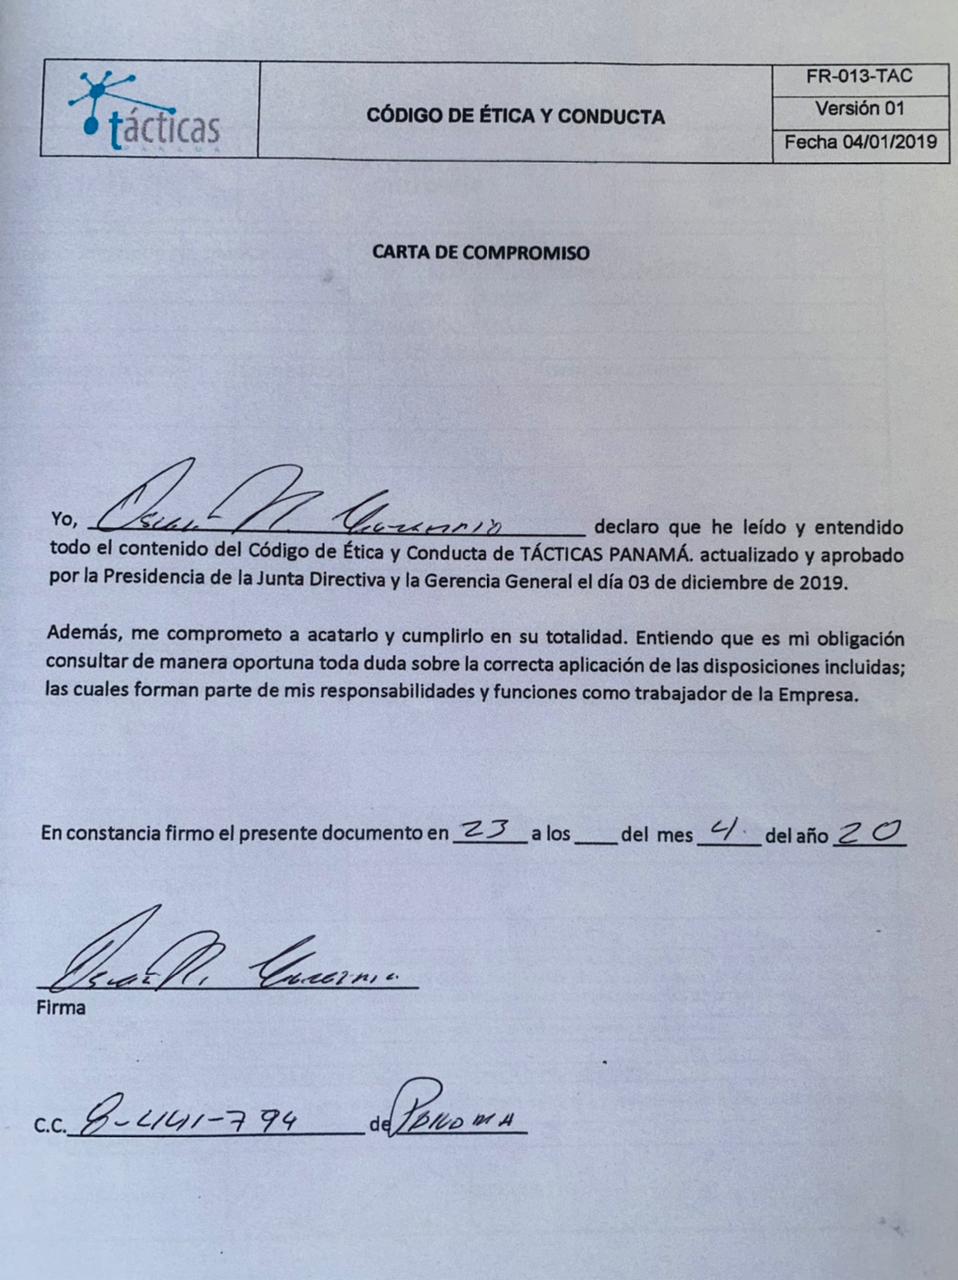 tácticas
PANAMÁ
CÓDIGO DE ÉTICA Y CONDUCTA
FR-013-TAC
Versión 01
Fecha 04/01/2019
CARTA DE COMPROMISO
Yo, Oscar N. declaro que he leído y entendido
todo el contenido del Código de Ética y Conducta de TÁCTICAS PANAMÁ. actualizado y aprobado
por la Presidencia de la Junta Directiva y la Gerencia General el día 03 de diciembre de 2019.
Además, me comprometo a acatarlo y cumplirlo en su totalidad. Entiendo que es mi obligación
consultar de manera oportuna toda duda sobre la correcta aplicación de las disposiciones incluidas;
las cuales forman parte de mis responsabilidades y funciones como trabajador de la Empresa.
En constancia firmo el presente documento en 23 a los ____ del mes 4. del año 20
Oscar N.
Firma
C.C. 8-441-794 de PANAMA